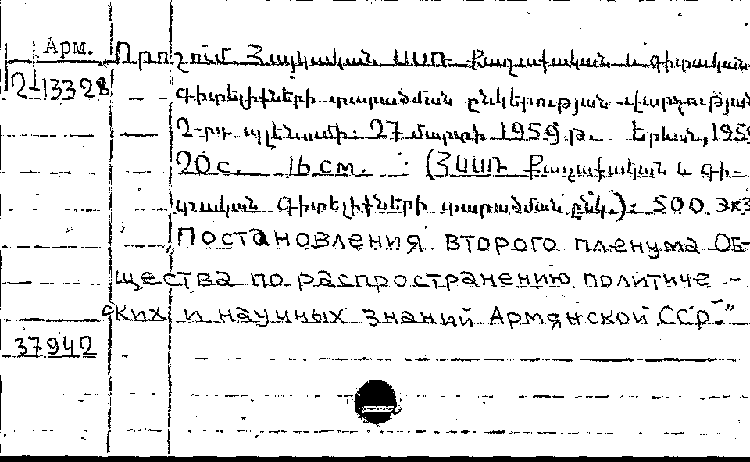 Арм.
2-13328
Որոշում Հայկական ՍՍՌ Քաղաքական և գիտական
գիտելիքների տարածման ընկերության վարչության
2-րդ պլենումի։ 27 մարտի 1959 թ. Երևան, 195
20 с. 16 см. (ՀՍՍՌ Քաղաքական և գի-
տական գիտելիքների տարածման ընկ.)։ 500 экз
Постановления второго пленума Об-
щества по распространению политиче-
ских и научных знаний Армянской ССР."
37942